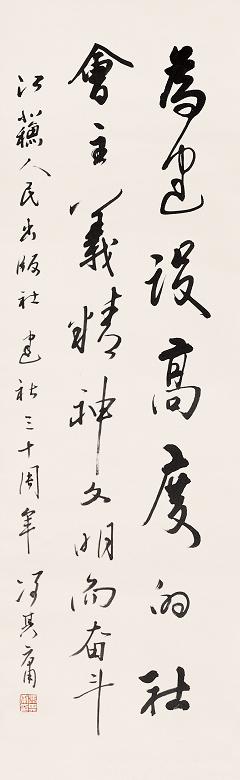 為建設高度的社
會主義精神文明而奋斗
江蘇人民出版社建社三十周年 馮其庸